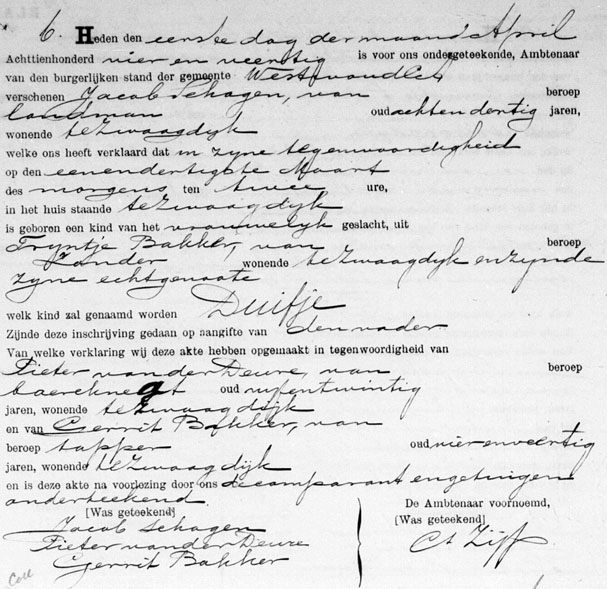 6. Heden den eerste dag der maand April
Achttienhonderd vier en veertig is voor ons ondergeteekende, Ambtenaar
van den burgerlijken stand der gemeente Westwoud
verschenen Jacob Schagen, van beroep
landman oud achtendertig jaren,
wonende te Zwaagdyk
welke ons heeft verklaard dat in zyne tegenwoordigheid
op den eenendertigste Maart
des morgens ten twee ure,
in het huis staande te Zwaagdyk
is geboren een kind van het vrouwelyk geslacht, uit
Tryntje Bakker, van beroep
Zonder wonende te Zwaagdyk en zynde
zyne echtgenoote
welk kind zal genaamd worden Duifje
Zijnde deze inschrijving gedaan op aangifte van den vader
Van welke verklaring wij deze akte hebben opgemaakt in tegenwoordigheid van
Pieter van der Deure, van beroep
boereknegt oud vyfentwintig
jaren, wonende te Zwaagdijk
en van Gerrit Bakker, van
beroep tapper oud vierenveertig
jaren, wonende te Zwaagdijk
en is deze akte na voorlezing door ons de comparant en getuigen
onderteekend.
[Was geteekend]
Jacob Schagen
Pieter van der Deure
Gerrit Bakker
De Ambtenaar voornoemd,
[Was geteekend]
Coll